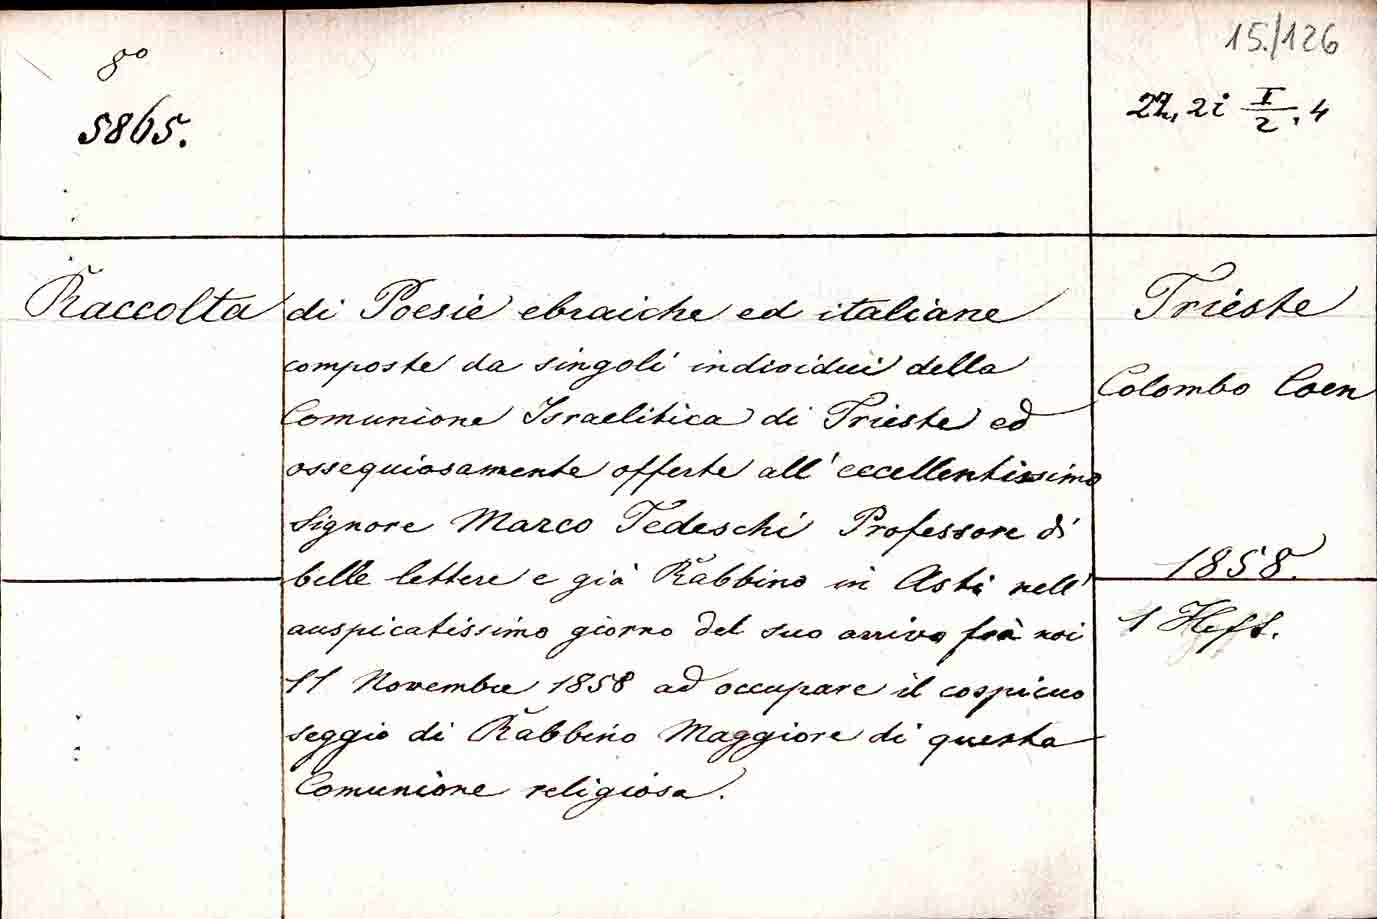 8º
5865.
15./126
22, 2i I/2, 4
Raccolta di Poesie ebraiche ed italiane
composte da singoli individui della
Comunione Israelitica di Trieste ed
ossequiosamente offerte all' eccellentissimo
Signore Marco Tedeschi Professore di
belle lettere e già Rabbino in Asti nell'
auspicatissimo giorno del suo arrivo frà noi
11 Novembre 1858 ad occupare il cospicuo
seggio di Rabbino Maggiore di questa
Comunione religiosa.
Trieste
Colombo Coen
1858.
1 Heft.